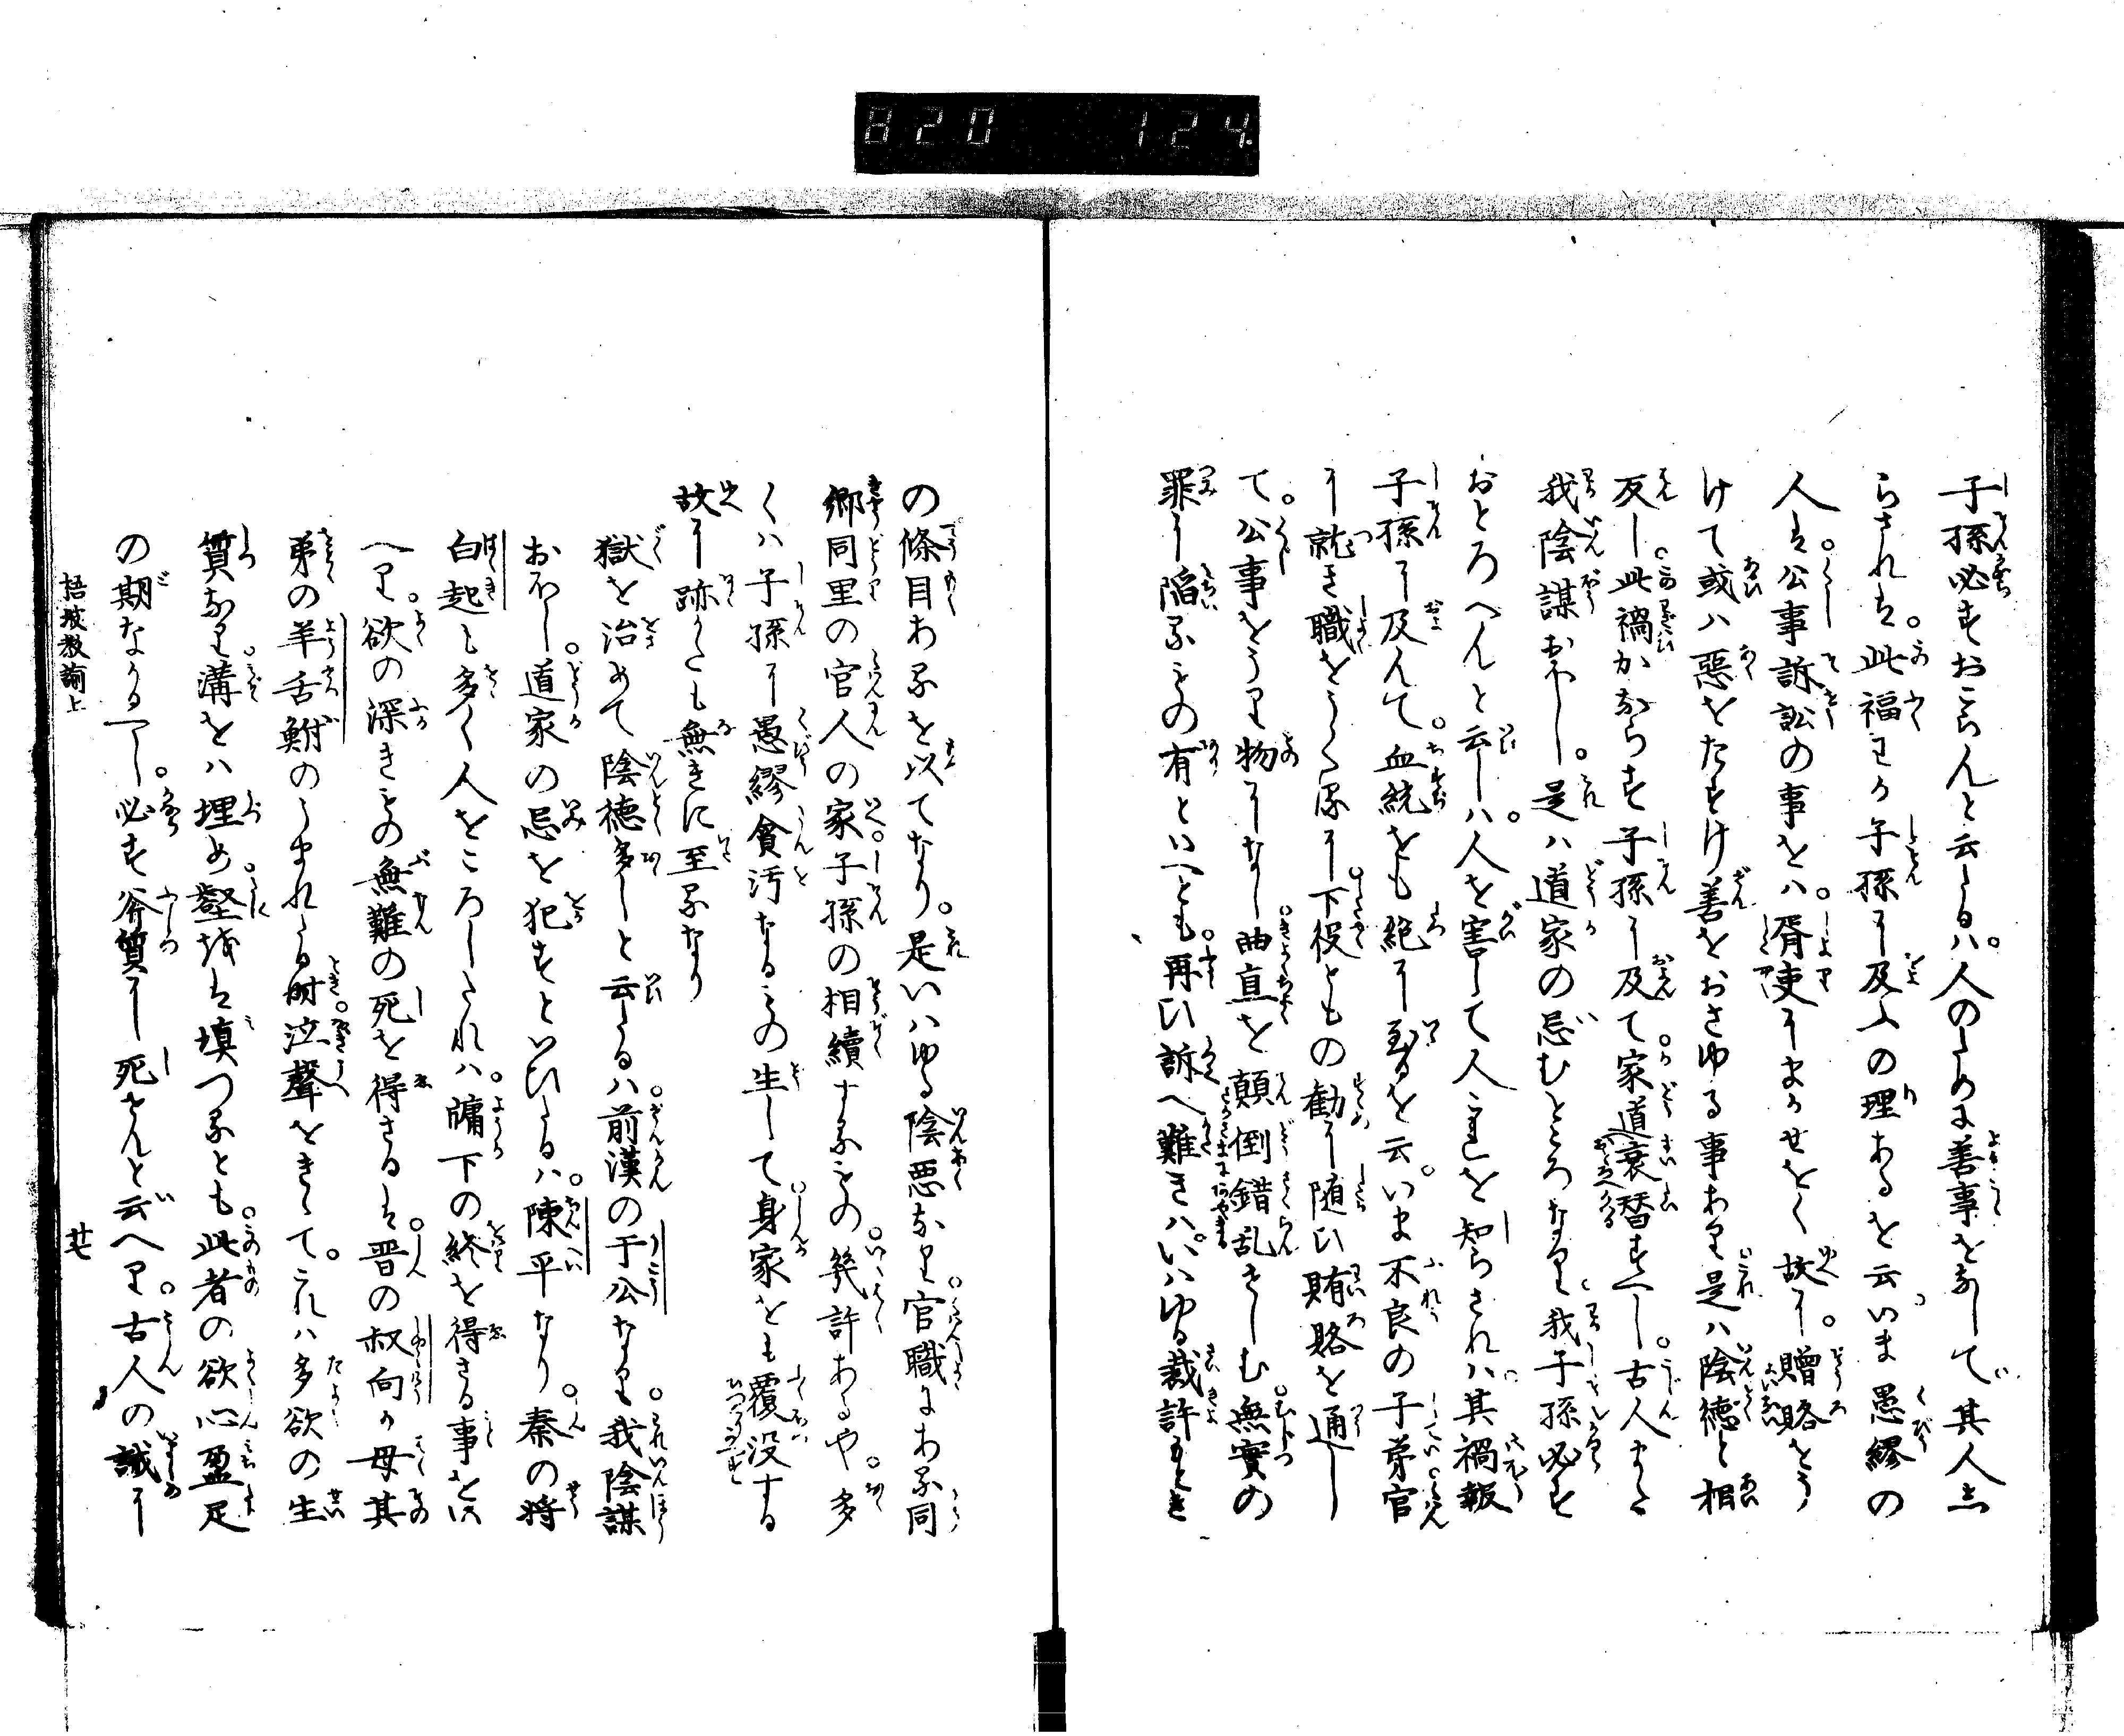 820 124.
子孫必ずおこらんと云るハ。人のために善事をなして其人し
らされは。此福わか子孫に及ふの理あるを云いま愚繆の
人は。公事訴訟の事をハ。胥吏にまかせをく故に。贈賂をう
けて或ハ悪をたすけ善をおさゆる事あり是ハ陰徳と相
反し。此禍かならす子孫に及て。家道衰替すへし。古人また
我陰謀おほし。是ハ道家の忌むところなり。我子孫必す
おとろへんと云しハ。人を害して人これを知らされハ其禍報
子孫に及んて。血統をも絶に到るを云。いま不良の子弟官
に就き職をうくるに。下役ともの勧に随ひ賄賂を通し
て。公事をうり物になし。曲直を顛倒錯乱せしむ。無實の
罪に陥るもの有といへとも。再ひ訴へ難きハ。いハゆる裁許もとき
の條目あるを以てなり。是いハゆる陰悪なり。官職にある同
郷同里の官人の家。子孫の相續するもの。幾許あるや。多
くハ子孫に愚繆貪汚なるもの生して。身家をも覆没する
故に跡かたも無きに至るなり
獄を治めて陰徳多しと云るハ。前漢の于公なり。我陰謀
おほし。道家の忌を犯すといひたるハ。陳平なり。秦の将
白起も多く人をころしたれハ。牖下の終を得さる事をい
へり。欲の深きもの無難の死を得さるは。晋の叔向か母其
弟の羊舌鮒のうまれたる時泣聲をきゝて。これハ多欲の生
質なり。溝をハ埋め。壑をは填つるとも。此者の欲心盈足
の期なかるへし。必す賄質に死せんと云へり。古人の誡に
梧坡教諭上
廿七